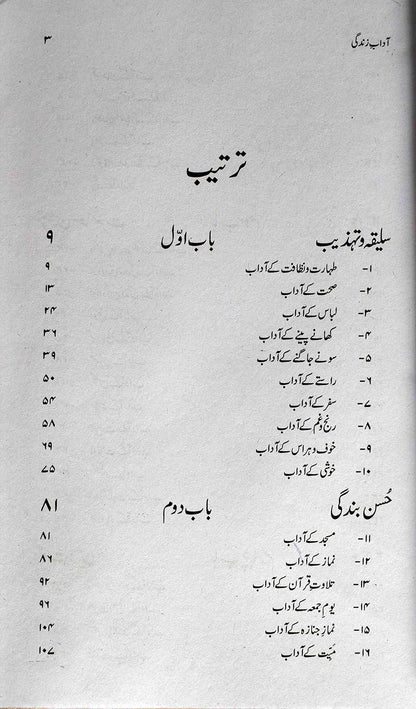 آداب زندگی ۳
ترتیب
سلیقہ و تہذیب باب اوّل ۹
۱- طہارت و نظافت کے آداب ۹
۲- صحت کے آداب ۱۳
۳- لباس کے آداب ۲۴
۴- کھانے پینے کے آداب ۳۶
۵- سونے جاگنے کے آداب ۳۹
۶- راستے کے آداب ۵۰
۷- سفر کے آداب ۵۴
۸- رنج و غم کے آداب ۵۸
۹- خوف و ہراس کے آداب ۶۹
۱۰- خوشی کے آداب ۷۵
حُسنِ بندگی باب دوم ۸۱
۱۱- مسجد کے آداب ۸۱
۱۲- نماز کے آداب ۸۶
۱۳- تلاوتِ قرآن کے آداب ۹۲
۱۴- یومِ جمعہ کے آداب ۹۶
۱۵- نمازِ جنازہ کے آداب ۱۰۴
۱۶- میّت کے آداب ۱۰۷